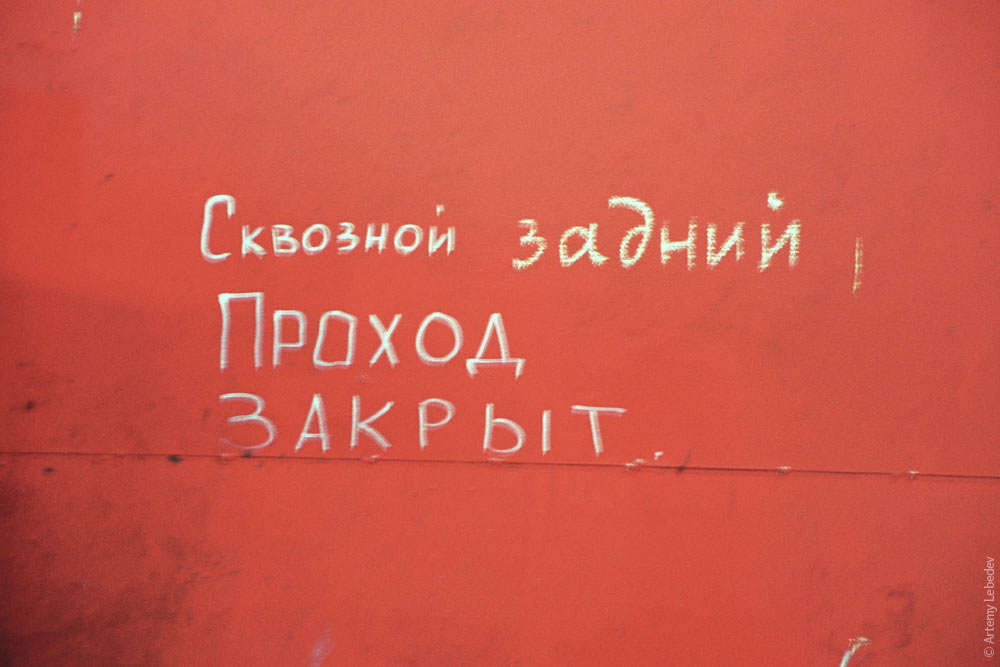 Сквозной задний
ПРОХОД
ЗАКРЫТ.
© Artemy Lebedev